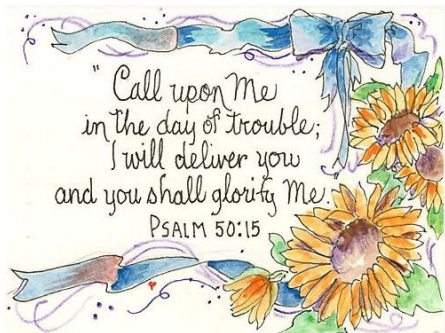 "Call upon Me
in the day of trouble;
I will deliver you
and you shall glorify Me.
PSAlM 50:15